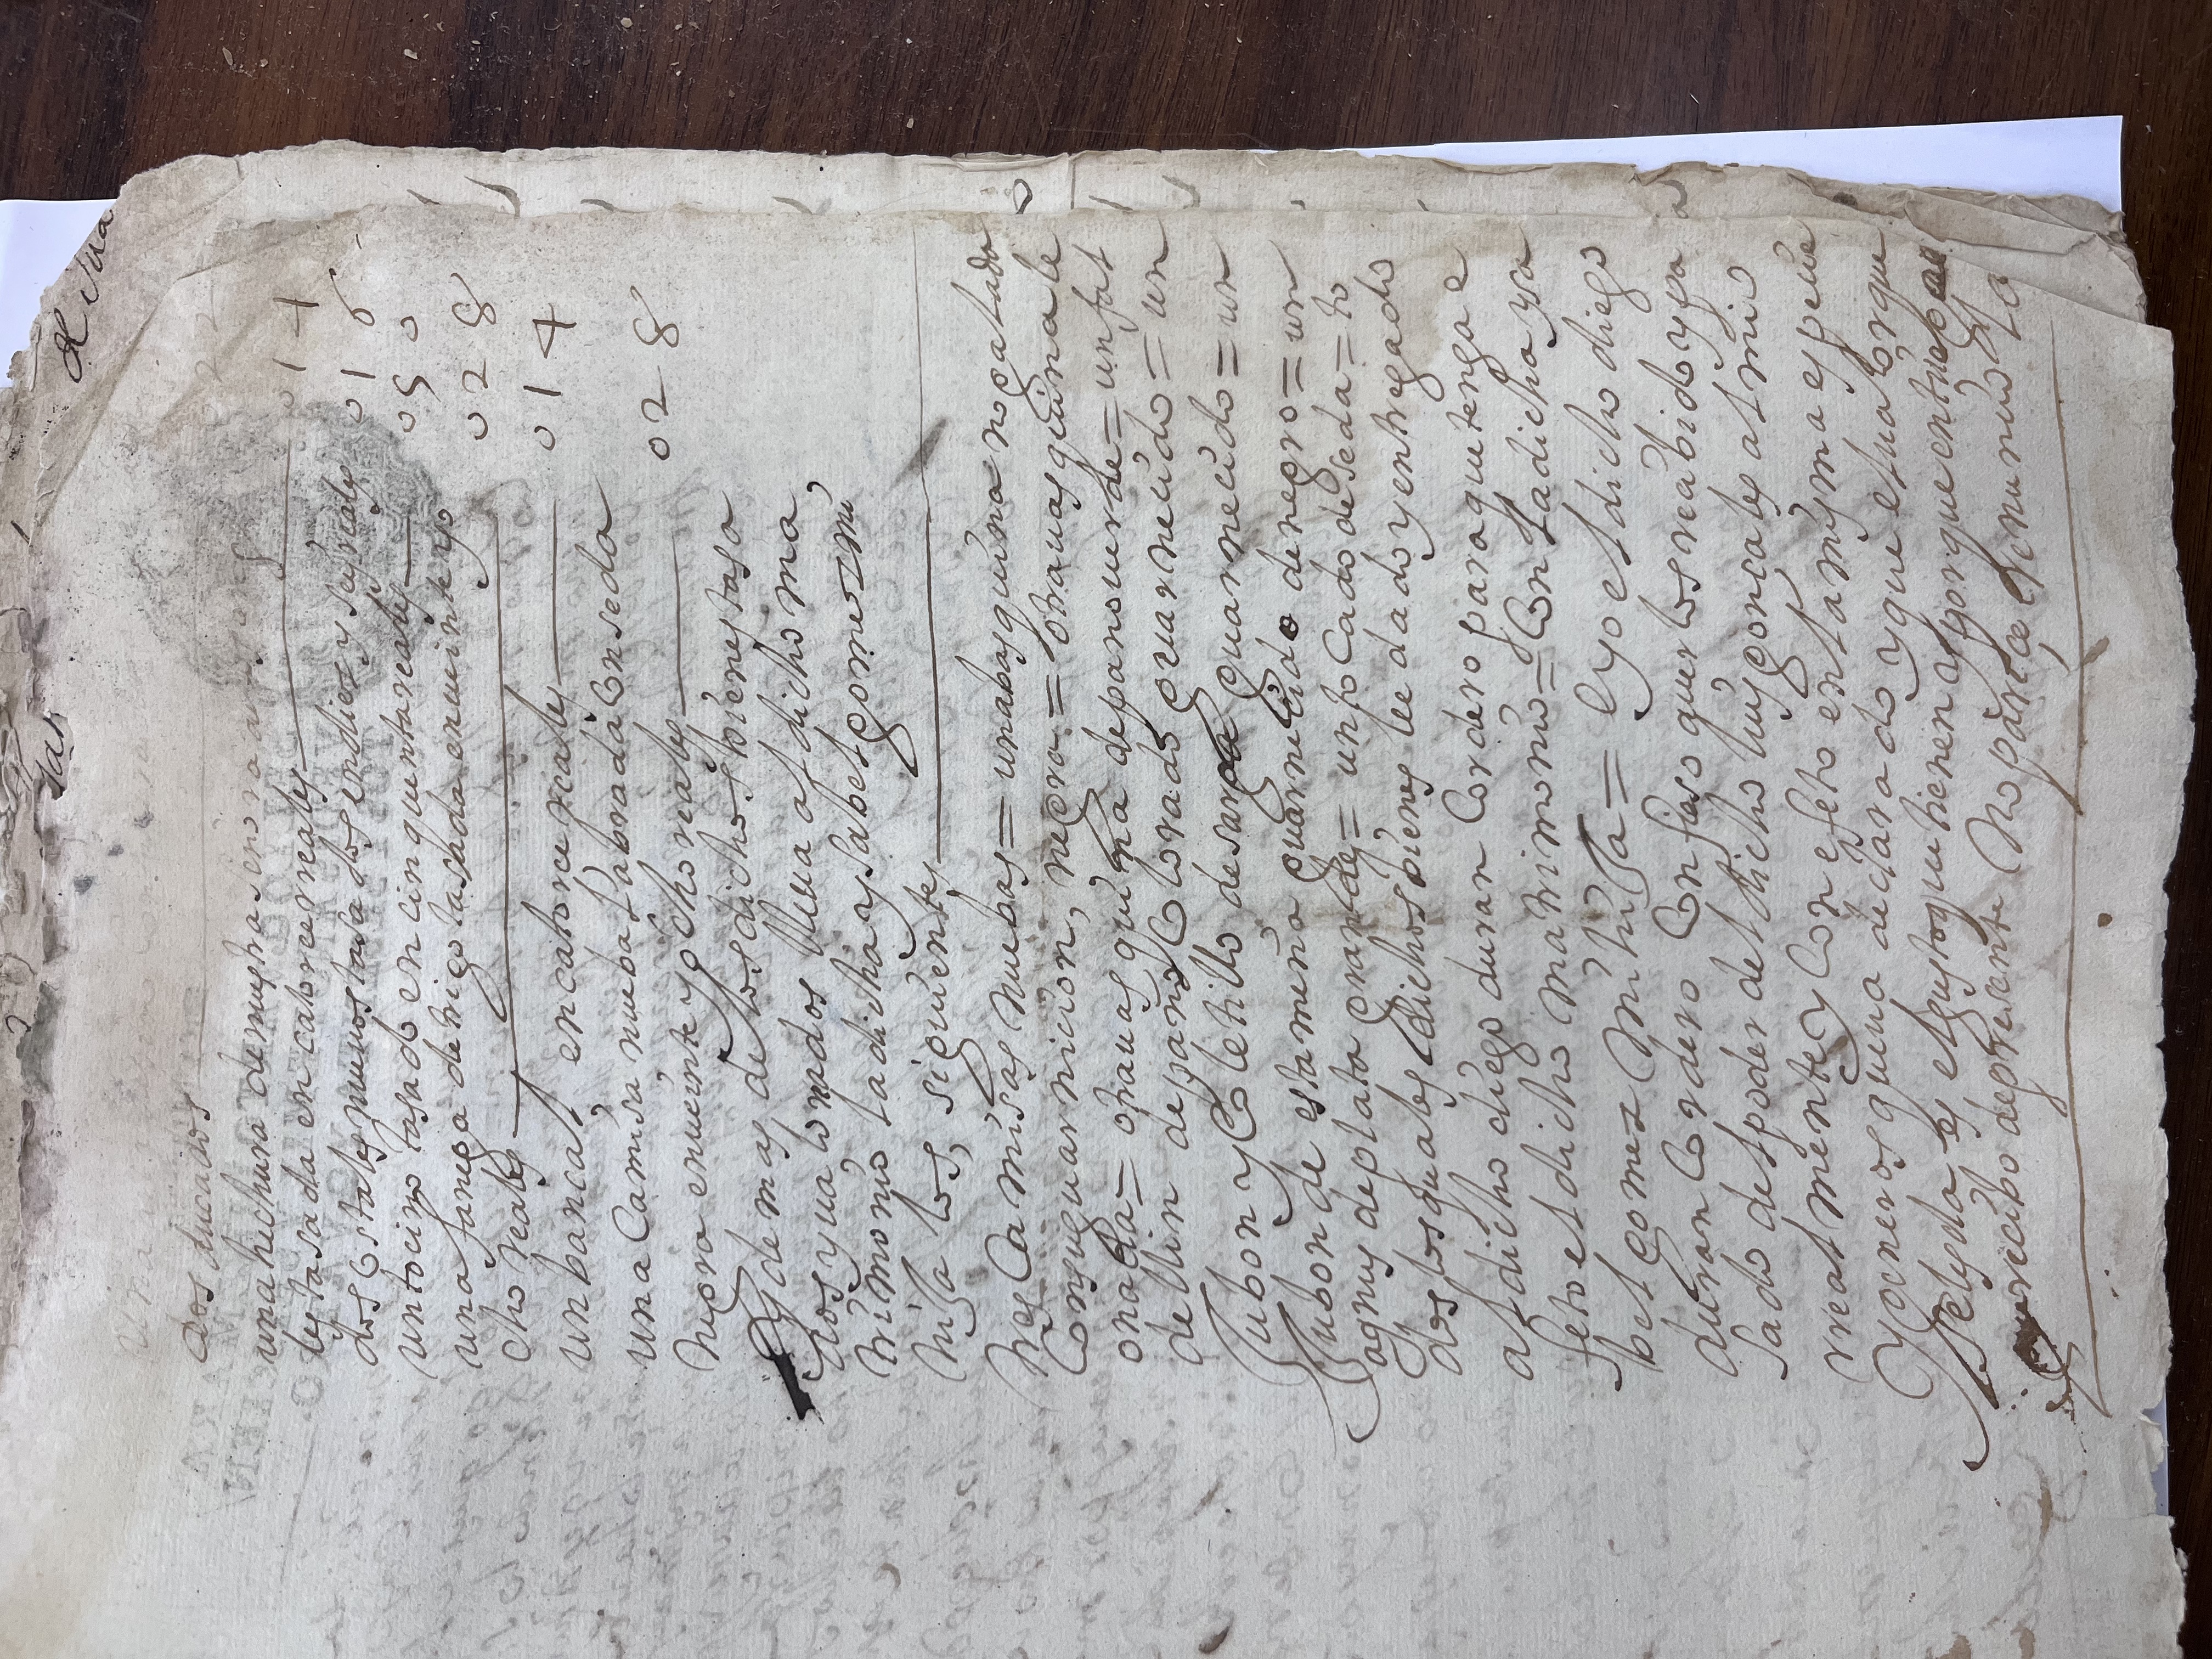 dos ducados
una hechura de nuestra seno
lestasada en catorce rreales 014
dos costales nuevos tasados en diez y seys reales 016
un tocino tasado en cinquenta reales 050
una fanega de trigo tasada en veinte y o
cho reales 028
un bancal en catorce reales 014
una camisa nueba labrada con seda
negra en veinte y ocho reales 028
Y demas de los dichos bienes tasa
dos y valorados lleva al dicho ma
trimonio la dicha ysabel gomez mi
hija los siguientes
tres camisas nuebas = una basquina nogalada
con su guarnicion negra = otra vasquina le
onada = otra vasquina de pano verde = un fal
dellin de pano colorado guarnecido = un
Jubon y coletillo de sarga guarnecido = un
Jubon de estamena guarnecido de negro = un
agnus de plata grande = un tocado de seda = to
dos los quales dichos bienes le e dado y entregado
al dicho diego duran cordero para que tenga e
feto el dicho matrimonio = con la dicha ysa
bel gomez mi hija = e yo el dicho diego
duran cordero confieso que los e reabido y pa
sado del poder del dicho luys goncales a el mio
rrealmente y con efeto en la mysma espeçie
y generos que va declarado y que el valor que
Por el presente no parece